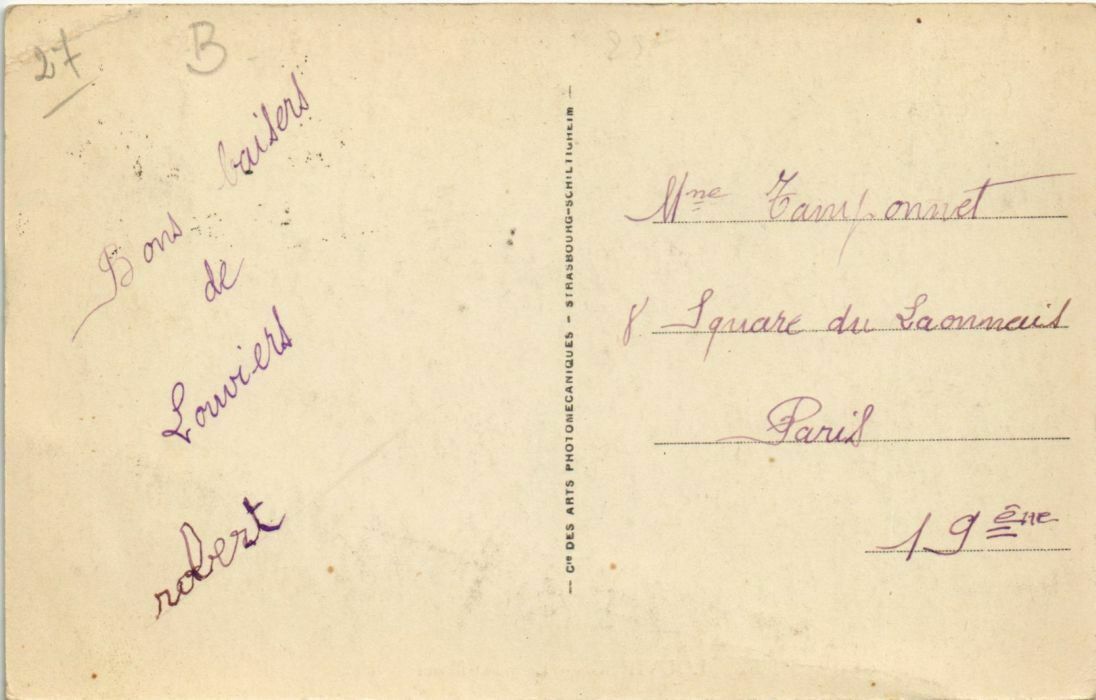 27
B
Bons baisers
de
Louviers
robert
— Cie DES ARTS PHOTOMECANIQUES - STRASBOURG-SCHILTIGHEIM —
Mme Tamponnet
8 Square du Laonnais
Paris
19ème